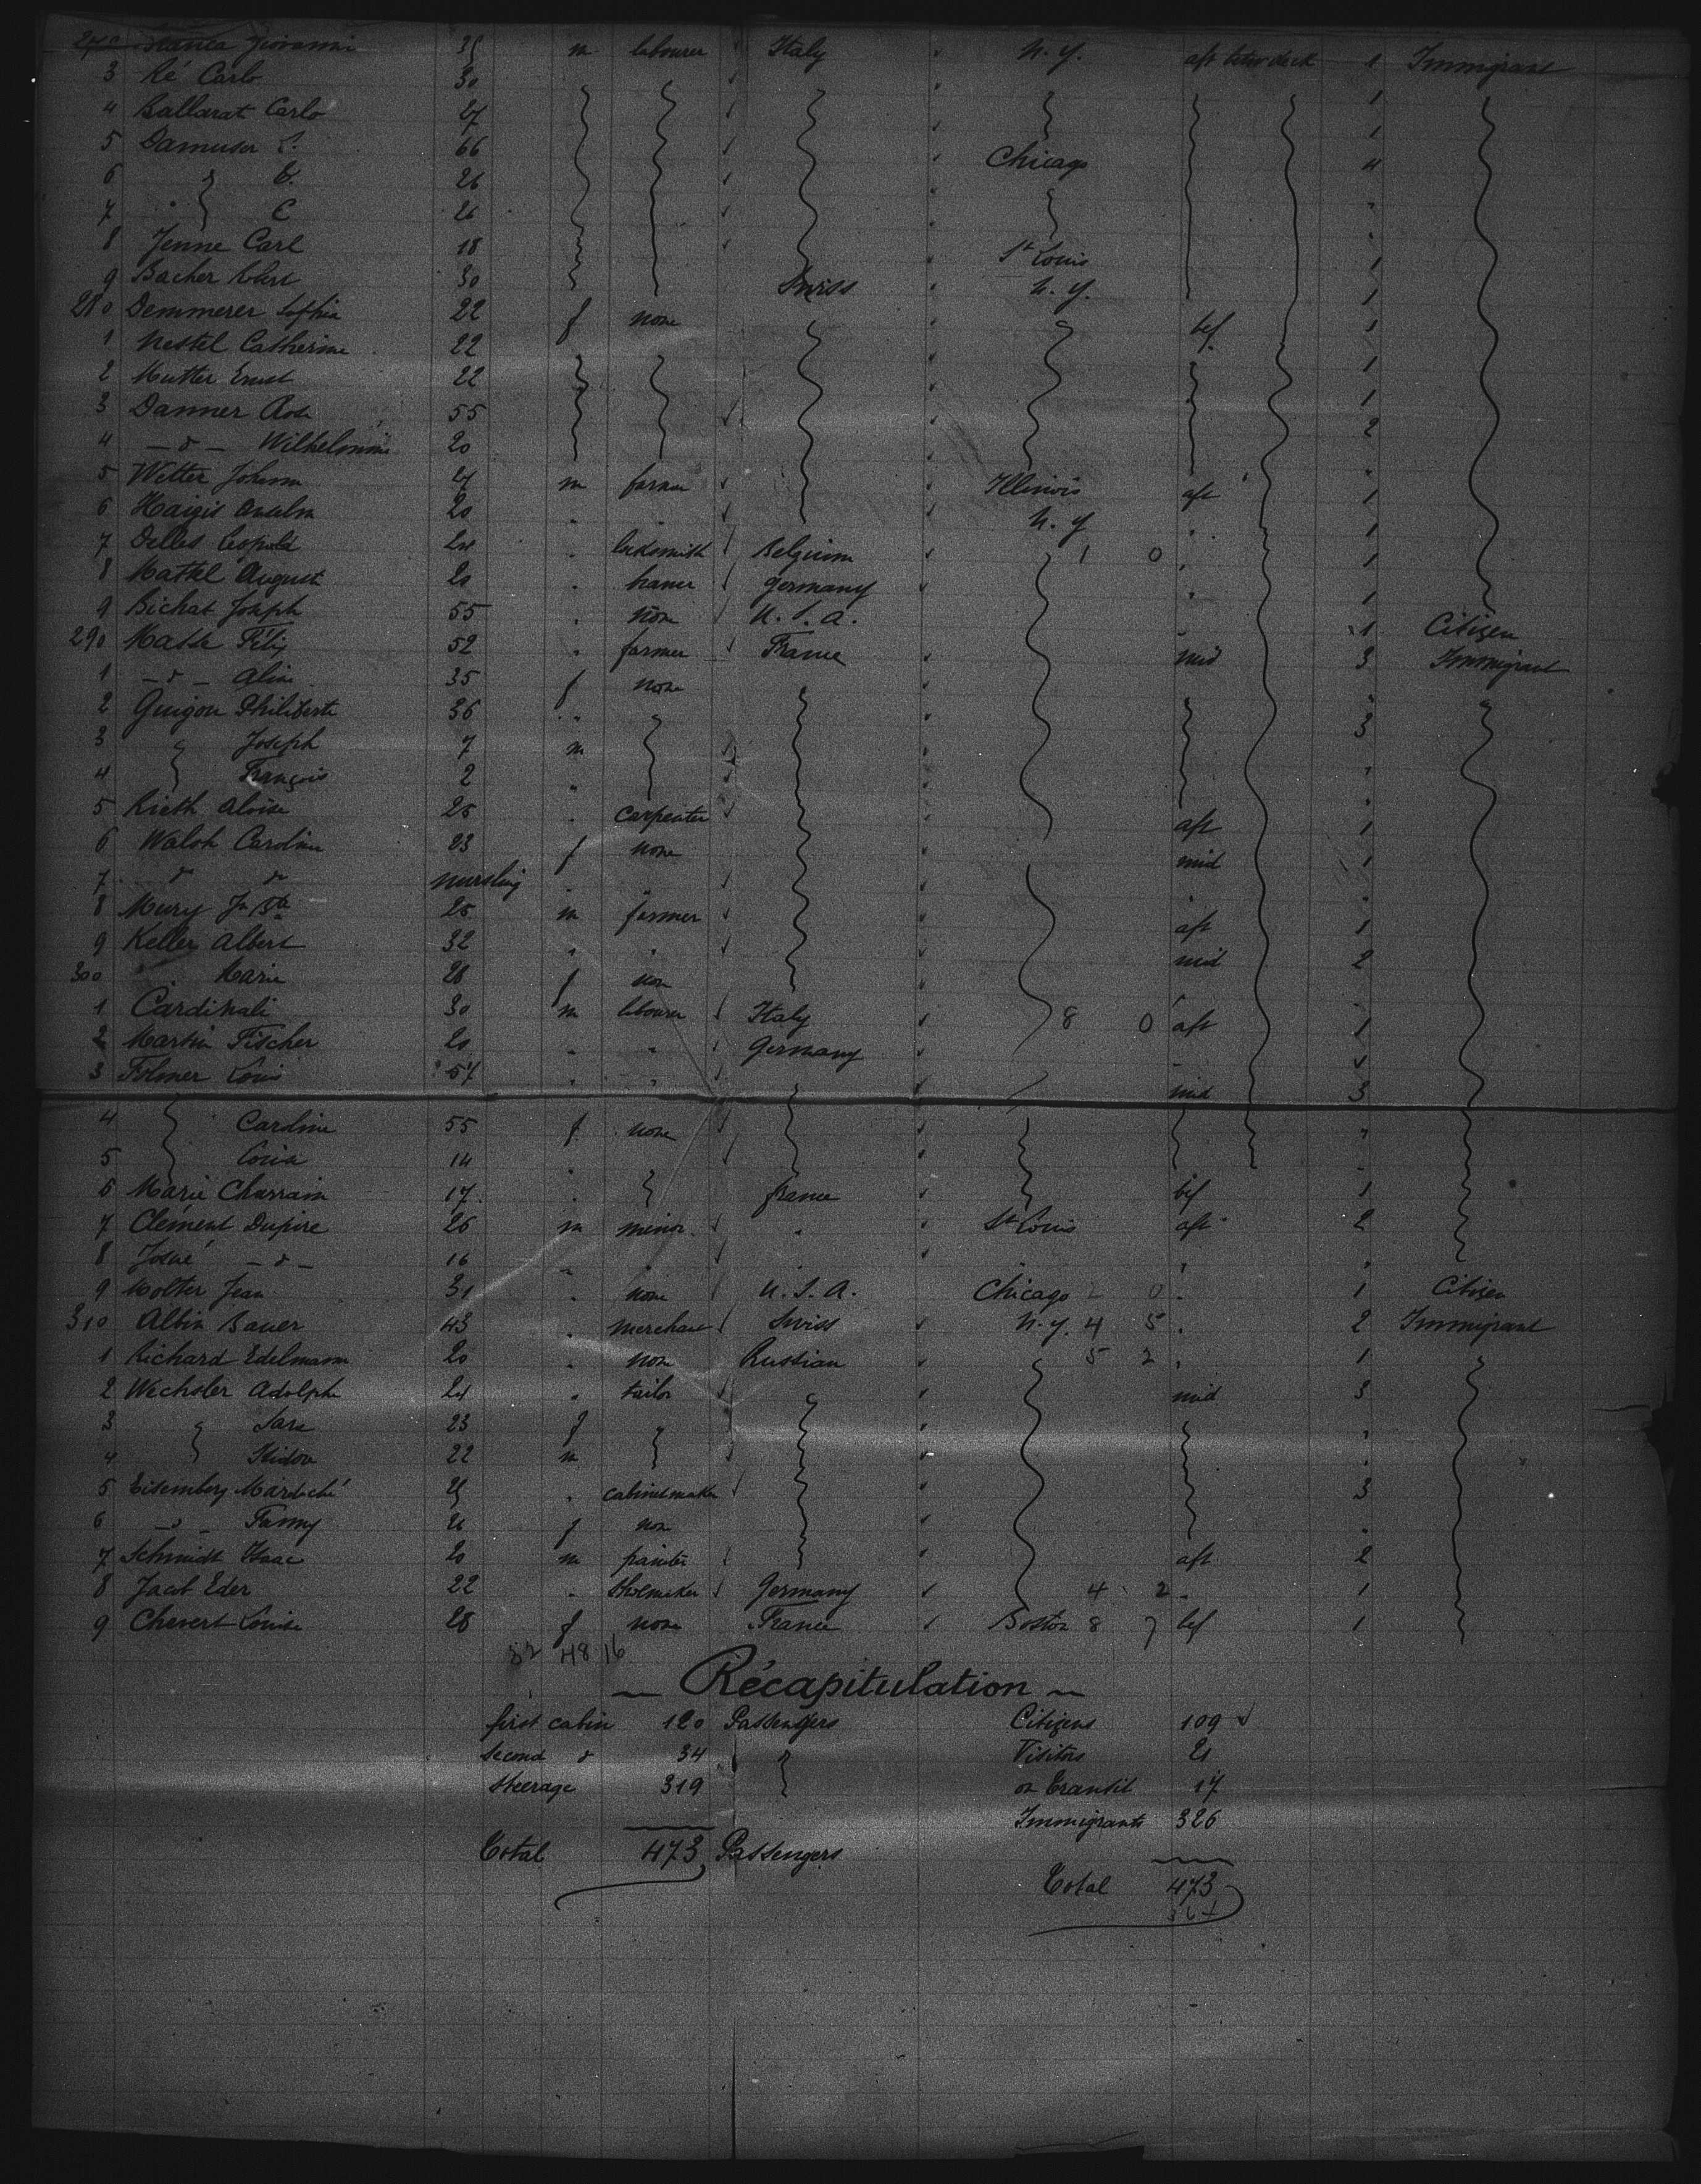 Giovanni m labourer Italy N. Y. aft betw deck 1 Immigrant
3 Ré Carlo 30 1
4 Ballarat Carlo 27 1
5 Damuser 66 Chicago 4
6 26 "
7 " C 26 "
8 Jenne Carl 18 St Louis 1
9 Bacher 30 Swiss N. Y. 1
280 Demmerer Sophia 22 f none bef 1
1 Nestel Catherine 22 1
2 Mutter Ernst 22 1
3 Danner Rosa 55 2
4 - d - Wilhelmine 20 "
5 Wetter Johann 27 m farmer Illinois aft 1
6 Haigis Anselm 20 " " N. Y " 1
7 Delles Leopold 24 " locksmith Belgium 1 0 " 1
8 Mattel August 20 " Germany " 1
9 Bichat Joseph 55 " none U. S. A. " 1 Citizen
290 Masse Félix 52 " farmer France mid 3 Immigrant
1 - d - Aline 35 f none "
2 Guigou Philiberte 36 " 3
3 Joseph 7 m "
4 François 2 " "
5 Rieth Aloïse 25 " carpenter aft 1
6 Walsh Caroline 23 f none mid 1
7 d d nursling " " "
8 Mury Jn Bte 25 m farmer aft 1
9 Keller Albert 32 " " mid 2
300 " Marie 28 f non "
1 Cardinali 30 m labourer Italy 8 0 aft 1
2 Martin Fischer 20 " " Germany "
3 Folmer Louis 57 " " mid 3
4 Caroline 55 f none "
5 Louise 14 " "
6 Marie Charrain 17 " france bef 1
7 Clément Dupire 26 m minor " St Louis aft 2
8 Josué - d - 16 " " " "
9 Molter Jean 31 " none U. S. A. Chicago 2 0 " 1 Citizen
310 Albin Bauer 43 " merchant Swiss N. Y. 4 5 " 2 Immigrant
1 Richard Edelmann 20 " none Russian 5 2 " 1
2 Wechsler Adolphe 24 " tailor mid 3
3 Sara 23 f "
4 Isidore 22 m "
5 Eisemberg Mardoché 25 " cabinetmaker 3
6 - d - Fanny 26 f non "
7 Schmidt Isaac 20 m painter aft 2
8 Jacob Eder 22 " Shoemaker Germany 4 2 " 1
9 Chevert Louise 28 f none France Boston 8 7 bef 1
52 48 16
Récapitulation
first cabin 120 Passengers Citizens 109
Second d 34 Visitors 21
Steerage 319 on Transit 17
Immigrants 326
Total 473 Passengers
Total 473